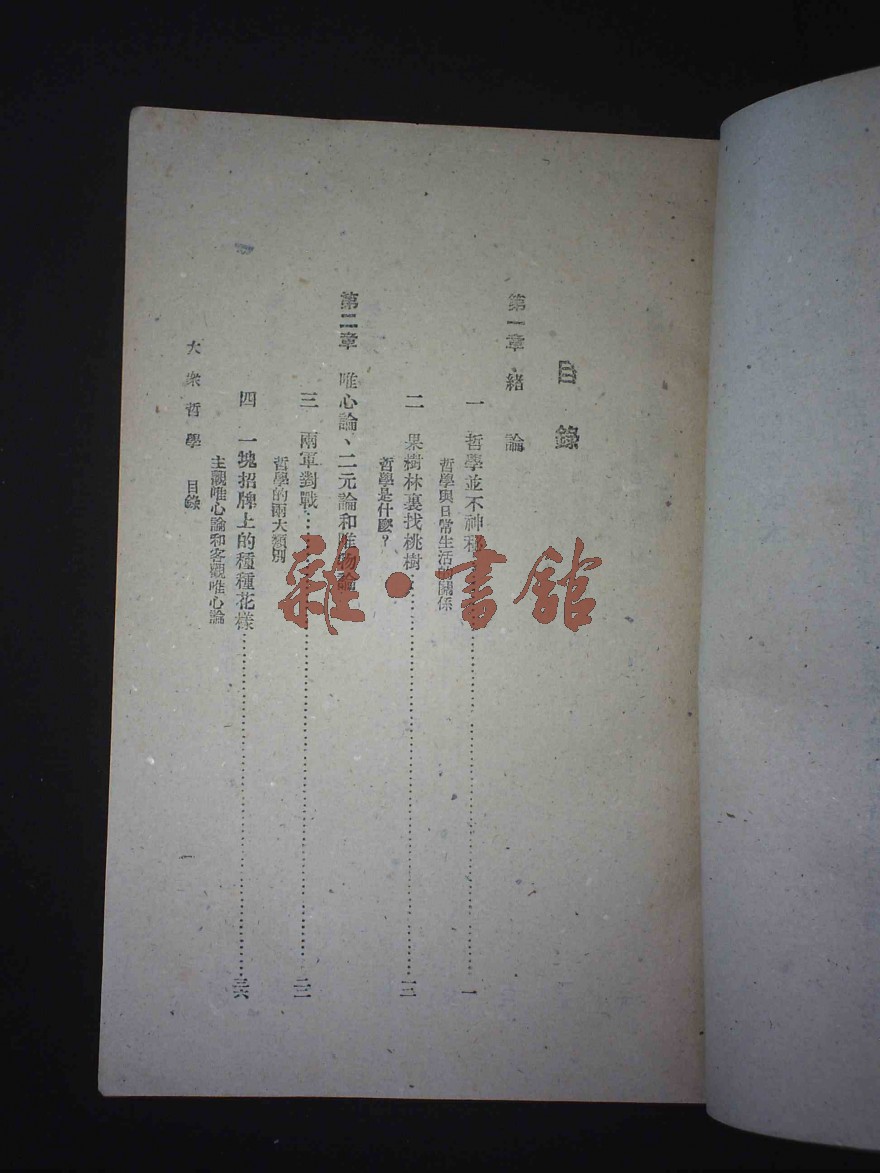 目錄
第一章 緒論
一 哲學並不神秘…………一
哲學與日常生活的關係
二 果樹林裏找桃樹…………一三
哲學是什麼?
第二章 唯心論、二元論和唯物論
三 兩軍對戰…………二二
哲學的兩大類別
四 一塊招牌上的種種花樣…………三六
主觀唯心論和客觀唯心論
大衆哲學 目錄
一
雜·書館